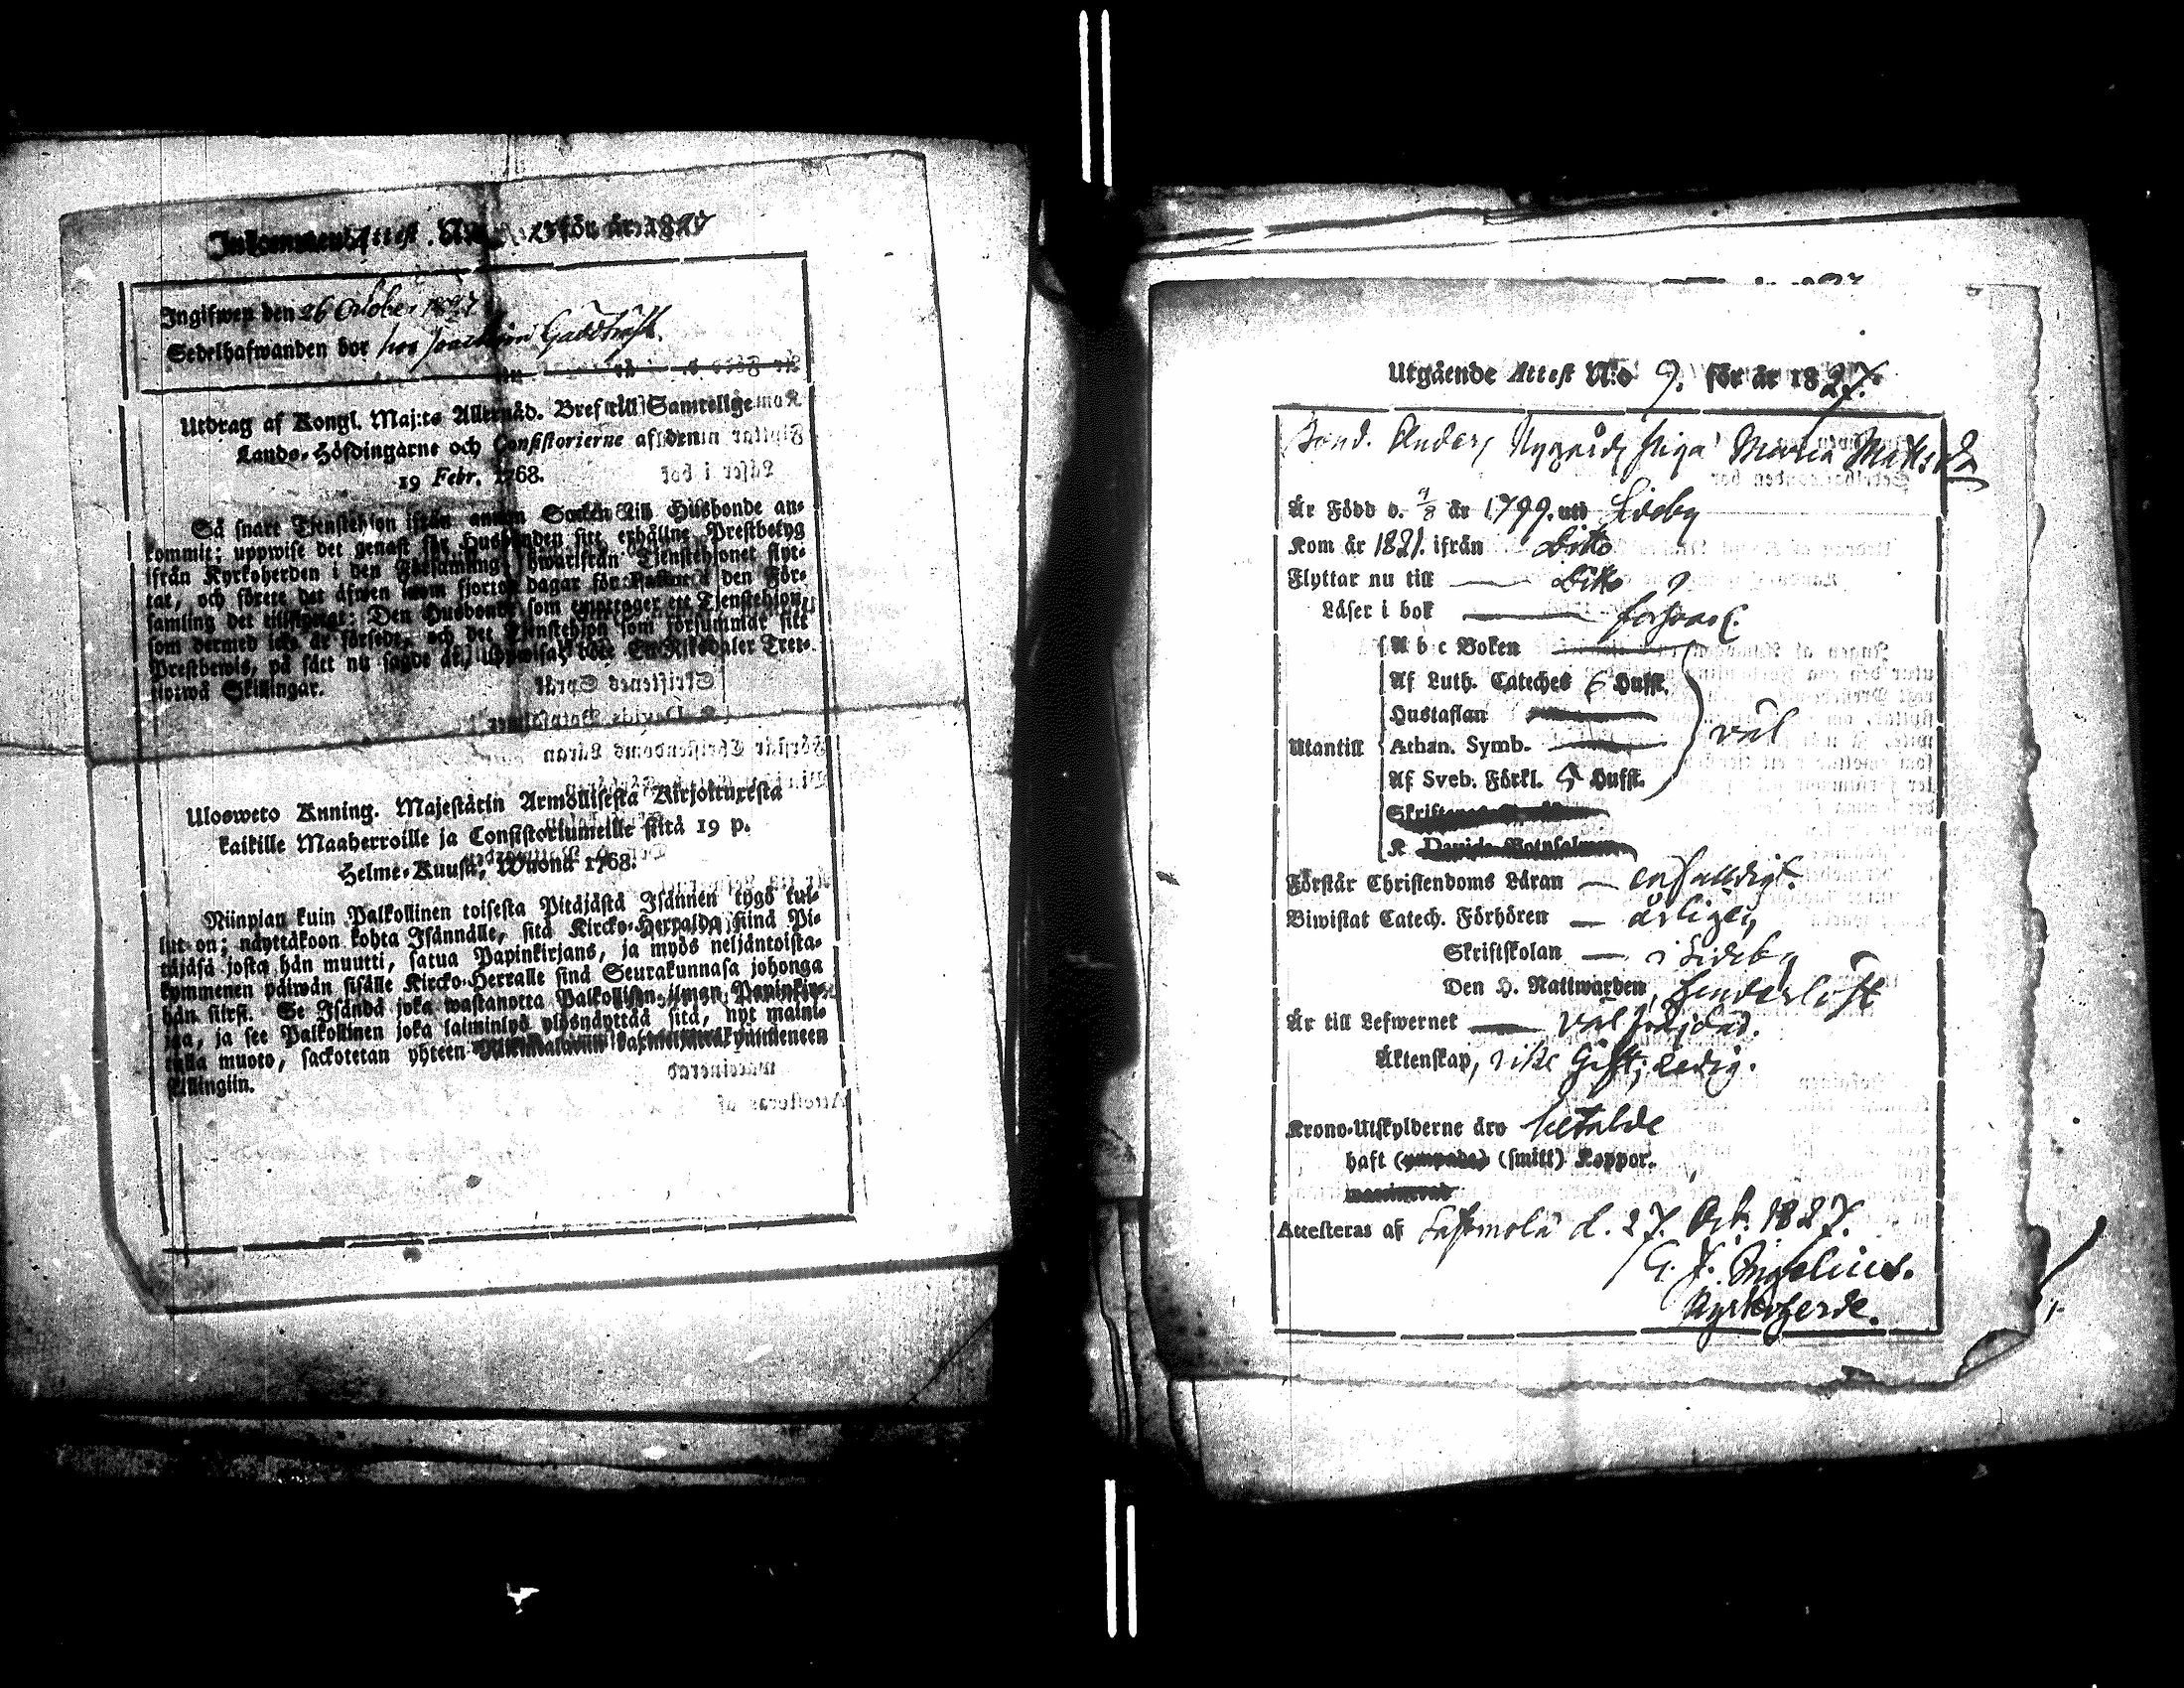 Inkommen Attest. N:o 13 för år 1827
Ingifwen den 26 October 1827
Sedelhafwanden bor hos Joachim
Utdrag af Kongl. Maj:ts Allernåd. Bref till Samtellge
Lands-Höfdingarne och Consistorierne af den
19 Febr. 1768.
Så snart Tjenstehjon ifrån annan Socken till Husbonde an-
kommit; uppwise det genast för Husbonden sitt erhållne Prestbetyg
ifrån Kyrkoherden i den Församling, hwarifrån Tjenstehjonet flyt-
tat, och förete det äfwen inom fjorton dagar för Pastor i den För-
samling det tillflyttat: Den Husbonde som emottager ett Tjenstehjon,
som dermed icke är försedt, och det Tjenstehjon som försummar sitt
Prestbewis, på sätt nu sagde är, uppwisa, böte En Riksdaler Tret-
tiotwå Skillingar.
Ulosweto Kuning. Majestätin Armollisesta Kirjoituxesta
kaikille Maaherroille ja Consistoriumeille siitä 19 p.
Helme-Kuusa, Wuonna 1768.
Niinpian kuin Palkollinen toisesta Pitäjästä Isännen tygö tul-
lut on; näyttäkoon kohta Isännälle, sitä Kircko-Herralda siinä Pi-
täjäsä josta hän muutti, satua Papinkirjans, ja myös neljäntoista-
kymmenen päiwän sisälle Kircko-Herralle siinä Seurakunnasa johonga
hän siirsi. Se Isändä joka wastanotta Palkollisen ilman Papinkir-
jaa, ja see Palkollinen joka laiminlyö ylösnäyttää sitä, nyt maini-
tulla muoto, sackotetan yhteen kymmeneen
Killingiin.
Utgående Attest N:o 9. för år 1827.
Bond. Anders Nygårds piga Maria Mattsdr
Är Född d. 4/8 år 1799. uti Sideby
Kom år 1821. ifrån Ditto
Flyttar nu till — Ditto
Läser i bok —
A b c Boken
Af Luth. Cateches 6 Hufst.
Hustaflan
Utantill Athan. Symb. väl
Af Sveb. Förkl. 5 Hufst.
K Davids Botpsalmer
Förstår Christendoms Läran — enfalldigt.
Biwistat Catech. Förhören — årligen,
Skriftskolan — i Sideby
Den H. Nattwarden,
Är till Lefwernet — väl frejdad.
Äktenskap, icke Gift; Ledig.
Krono-Utskylderne äro betalde
haft (ympade) (smitt) Koppor.
vaccinerad
Attesteras af Lappmola d. 27. Oct. 1827.
Kyrkoherde.